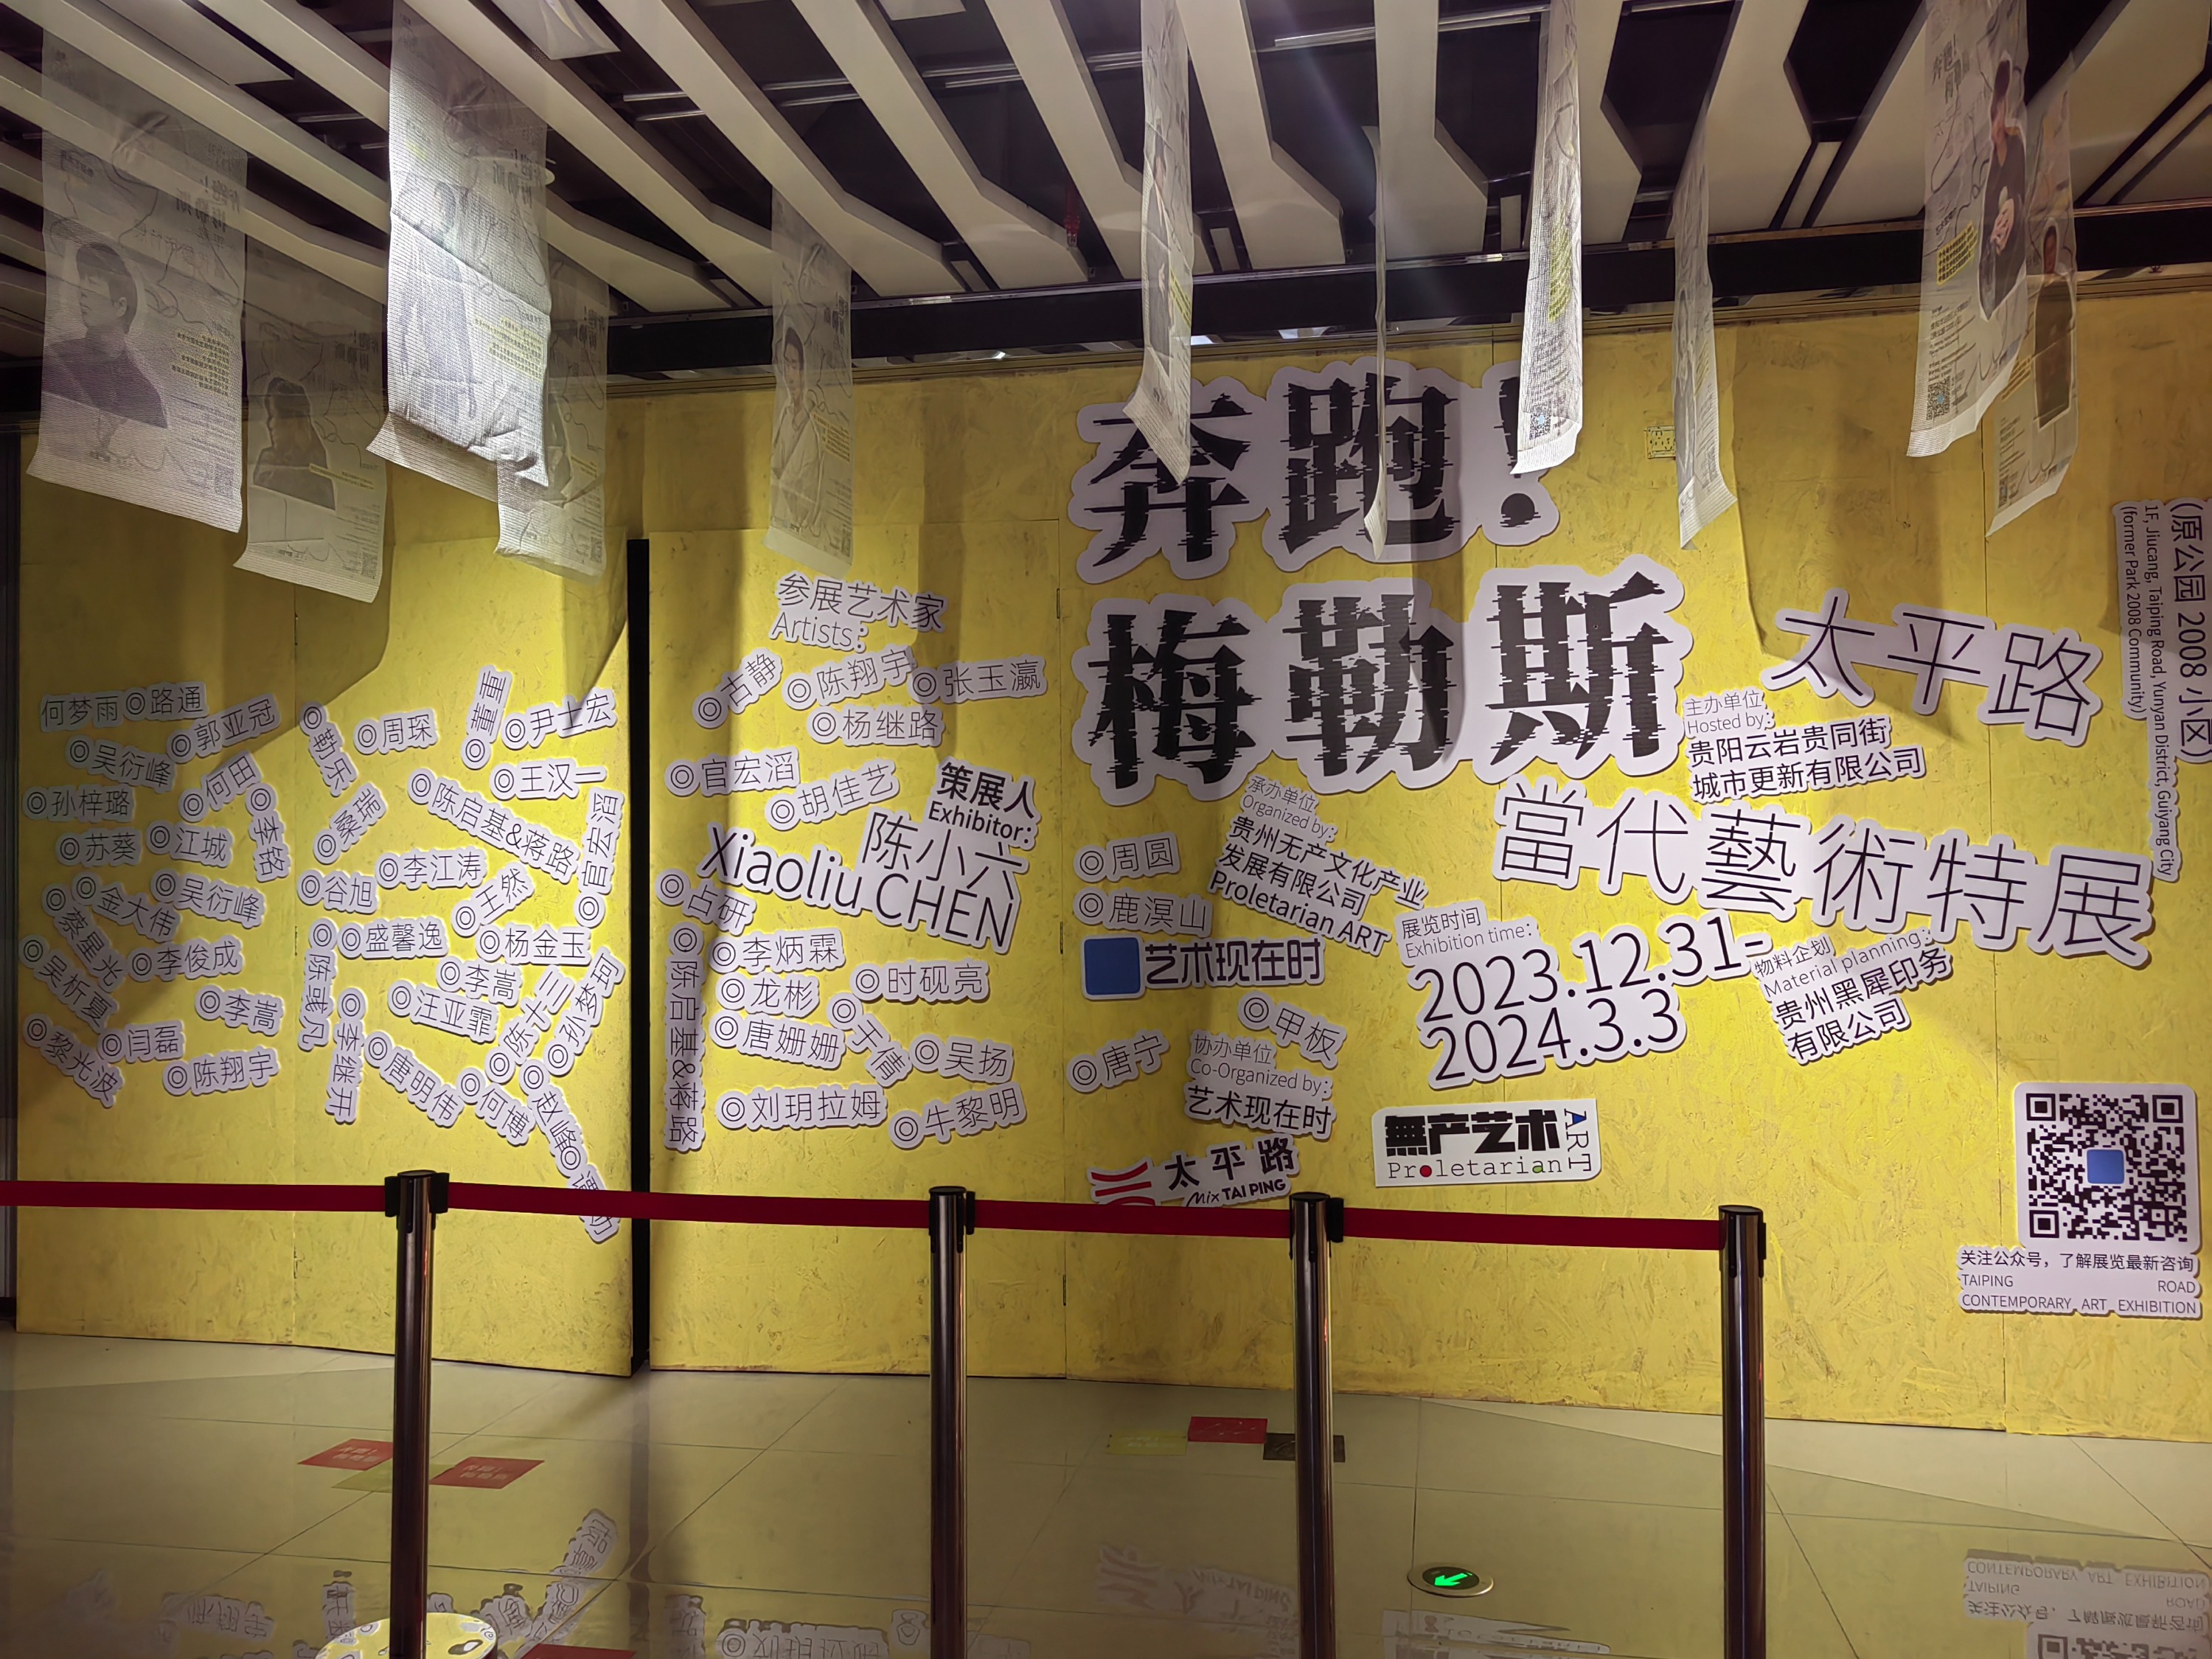 奔跑！
梅勒斯
太平路
當代藝術特展
(原公园 2008 小区)
1F, Jiucang, Taiping Road, Yunyan District, Guiyang City
(former Park 2008 Community)
主办单位
Hosted by:
贵阳云岩贵同街
城市更新有限公司
承办单位
Organized by:
贵州无产文化产业
发展有限公司
Proletarian ART
展览时间
Exhibition time:
2023.12.31-
2024.3.3
物料企划
Material planning:
贵州黑犀印务
有限公司
协办单位
Co-Organized by:
艺术现在时
艺术现在时
太平路
Mix TAI PING
無产艺术
Proletarian
ART
关注公众号，了解展览最新咨询
TAIPING ROAD
CONTEMPORARY ART EXHIBITION
策展人
Exhibitor:
陈小六
Xiaoliu CHEN
参展艺术家
Artists:
◎古静
◎陈翔宇
◎张玉瀛
◎杨继路
◎官宏滔
◎胡佳艺
◎周圆
◎鹿溟山
◎占研
◎李炳霖
◎陈启基&蒋路
◎龙彬
◎时砚亮
◎唐姗姗
◎于倩
◎吴扬
◎甲板
◎唐宁
◎刘玥拉姆
◎牛黎明
何梦雨
◎路通
◎郭亚冠
◎吴衍峰
◎何田
◎孙梓璐
◎李铭
◎苏葵
◎江城
◎金大伟
◎吴衍峰
◎蔡星光
◎李俊成
◎吴析夏
◎李嵩
◎黎光波
◎闫磊
◎陈翔宇
◎勒乐
◎周琛
◎尹士宏
◎王汉一
◎陈启基&蒋路
◎官宏滔
◎李江涛
◎谷旭
◎王然
◎盛馨逸
◎杨金玉
◎陈彧凡
◎李嵩
◎汪亚霏
◎孙梦珂
◎李继开
◎唐明伟
◎何博
◎赵峰